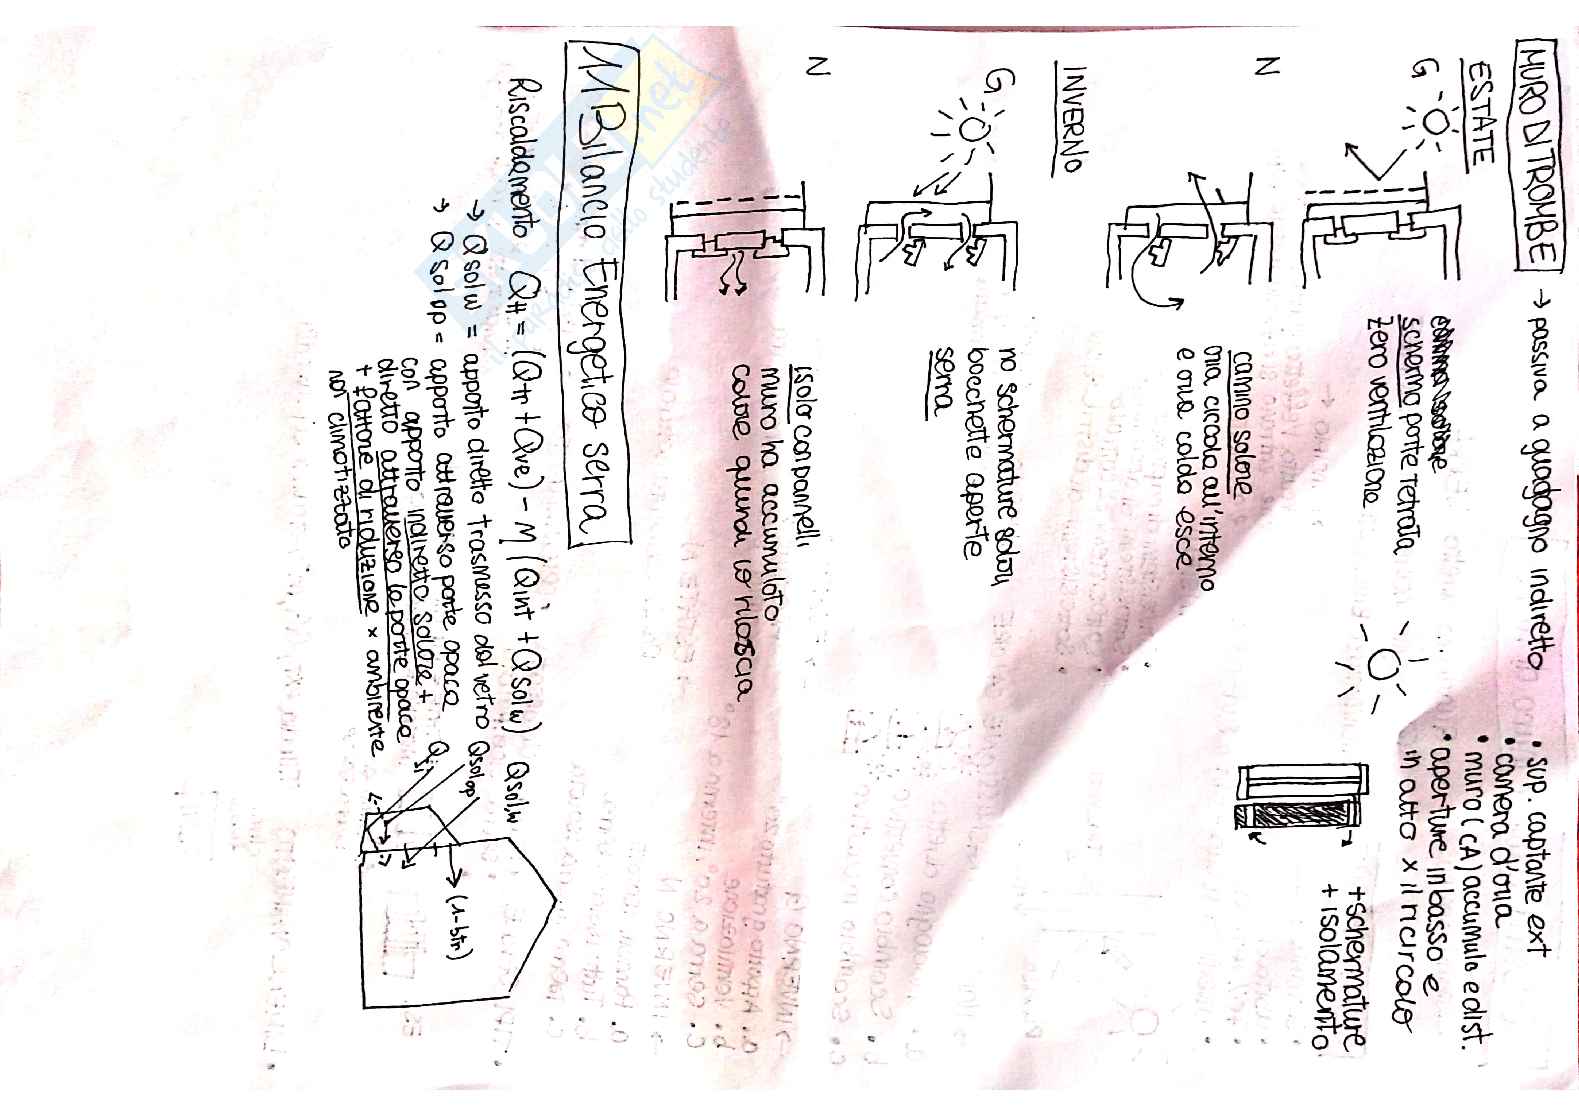 MURO DI TROMBE → passiva a guadagno indiretto
• sup. captante ext
• camera d'aria
• muro (CA) accumulo e dist.
• aperture in basso e
in alto x il ricircolo
+ schermature
+ isolamento
ESTATE
G
schermo parte vetrata
zero ventilazione
N
camino solare
aria circola all'interno
e aria calda esce
INVERNO
G
no schermature solari
bocchette aperte
serra
N
isolo con pannelli
muro ha accumulato
calore quindi lo rilascia
11 Bilancio Energetico serra
Riscaldamento QH = (Qtr + Qve) - M (Qint + Qsol w)
→ Qsol w = apporto diretto trasmesso dal vetro
→ Qsol op = apporto attraverso parte opaca
con apporto indiretto solare +
diretto attraverso la parte opaca
+ fattore di riduzione x ambiente
non climatizzato
Qsol,w
Qsol op
Qsi
(1-btr)